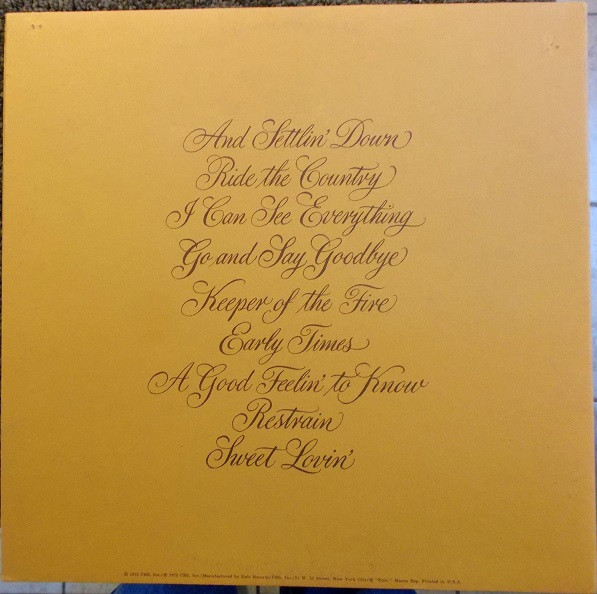 And Settlin' Down
Ride the Country
I Can See Everything
Go and Say Goodbye
Keeper of the Fire
Early Times
A Good Feelin' to Know
Restrain
Sweet Lovin'
Inc./Manufactured by Epic Records/CBS, Inc./51 W. 52 Street, New York City/® "Epic," Marca Reg. Printed in U.S.A.